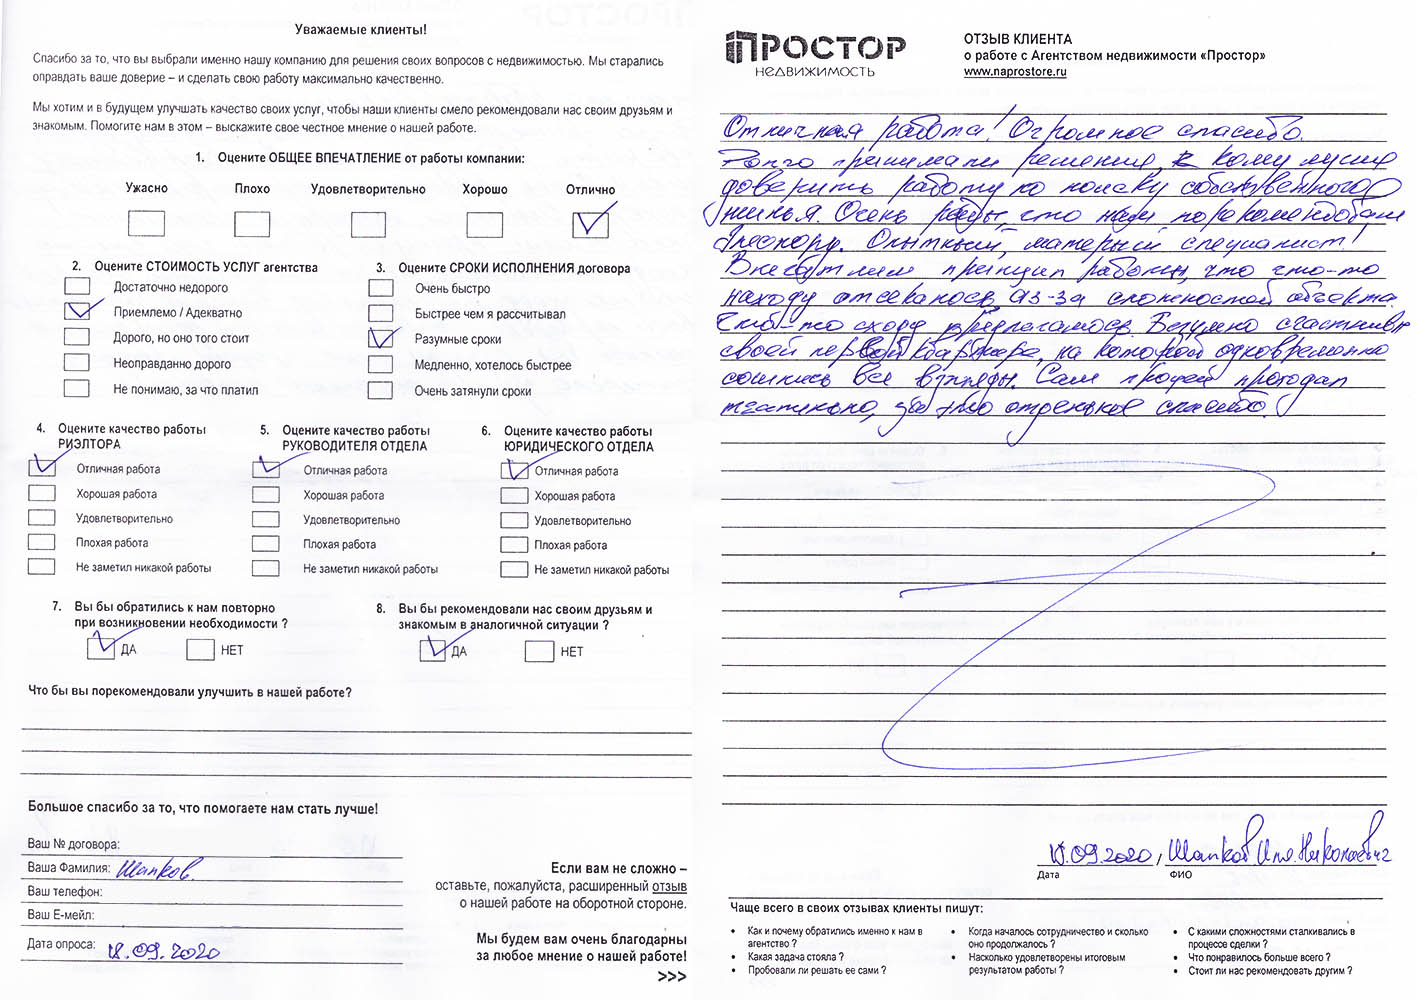 Уважаемые клиенты!
Спасибо за то, что вы выбрали именно нашу компанию для решения своих вопросов с недвижимостью. Мы старались
оправдать ваше доверие – и сделать свою работу максимально качественно.
Мы хотим и в будущем улучшать качество своих услуг, чтобы наши клиенты смело рекомендовали нас своим друзьям и
знакомым. Помогите нам в этом – выскажите свое честное мнение о нашей работе.
1. Оцените ОБЩЕЕ ВПЕЧАТЛЕНИЕ от работы компании:
Ужасно Плохо Удовлетворительно Хорошо Отлично
2. Оцените СТОИМОСТЬ УСЛУГ агентства
Достаточно недорого
Приемлемо / Адекватно
Дорого, но оно того стоит
Неоправданно дорого
Не понимаю, за что платил
3. Оцените СРОКИ ИСПОЛНЕНИЯ договора
Очень быстро
Быстрее чем я рассчитывал
Разумные сроки
Медленно, хотелось быстрее
Очень затянули сроки
4. Оцените качество работы
РИЭЛТОРА
Отличная работа
Хорошая работа
Удовлетворительно
Плохая работа
Не заметил никакой работы
5. Оцените качество работы
РУКОВОДИТЕЛЯ ОТДЕЛА
Отличная работа
Хорошая работа
Удовлетворительно
Плохая работа
Не заметил никакой работы
6. Оцените качество работы
ЮРИДИЧЕСКОГО ОТДЕЛА
Отличная работа
Хорошая работа
Удовлетворительно
Плохая работа
Не заметил никакой работы
7. Вы бы обратились к нам повторно
при возникновении необходимости ?
ДА НЕТ
8. Вы бы рекомендовали нас своим друзьям и
знакомым в аналогичной ситуации ?
ДА НЕТ
Что бы вы порекомендовали улучшить в нашей работе?
Большое спасибо за то, что помогаете нам стать лучше!
Ваш № договора:
Ваша Фамилия: Шапков.
Ваш телефон:
Ваш Е-мейл:
Дата опроса: 18.09.2020
Если вам не сложно –
оставьте, пожалуйста, расширенный отзыв
о нашей работе на оборотной стороне.
Мы будем вам очень благодарны
за любое мнение о нашей работе!
>>>
ПРОСТОР
НЕДВИЖИМОСТЬ
ОТЗЫВ КЛИЕНТА
о работе с Агентством недвижимости «Простор»
www.naprostore.ru
Отличная работа! Огромное спасибо.
Долго принимали решение, кому лучше
доверить работу по поиску собственного
жилья. Очень рады, что нам порекомендовали
. Опытный, матерый специалист!
принцип работы, что что-то
находу отсеивалось из-за сложностей объекта.
Что-то сходу предлагалось. Безумно счастливы
своей первой квартире, на которой одновременно
сошлись все взгляды. Сам процесс
, за что отдельное спасибо!
18.09.2020, Шапков Николаевич
Дата ФИО
Чаще всего в своих отзывах клиенты пишут:
• Как и почему обратились именно к нам в
агентство ?
• Какая задача стояла ?
• Пробовали ли решать ее сами ?
• Когда началось сотрудничество и сколько
оно продолжалось ?
• Насколько удовлетворены итоговым
результатом работы ?
• С какими сложностями сталкивались в
процессе сделки ?
• Что понравилось больше всего ?
• Стоит ли нас рекомендовать другим ?